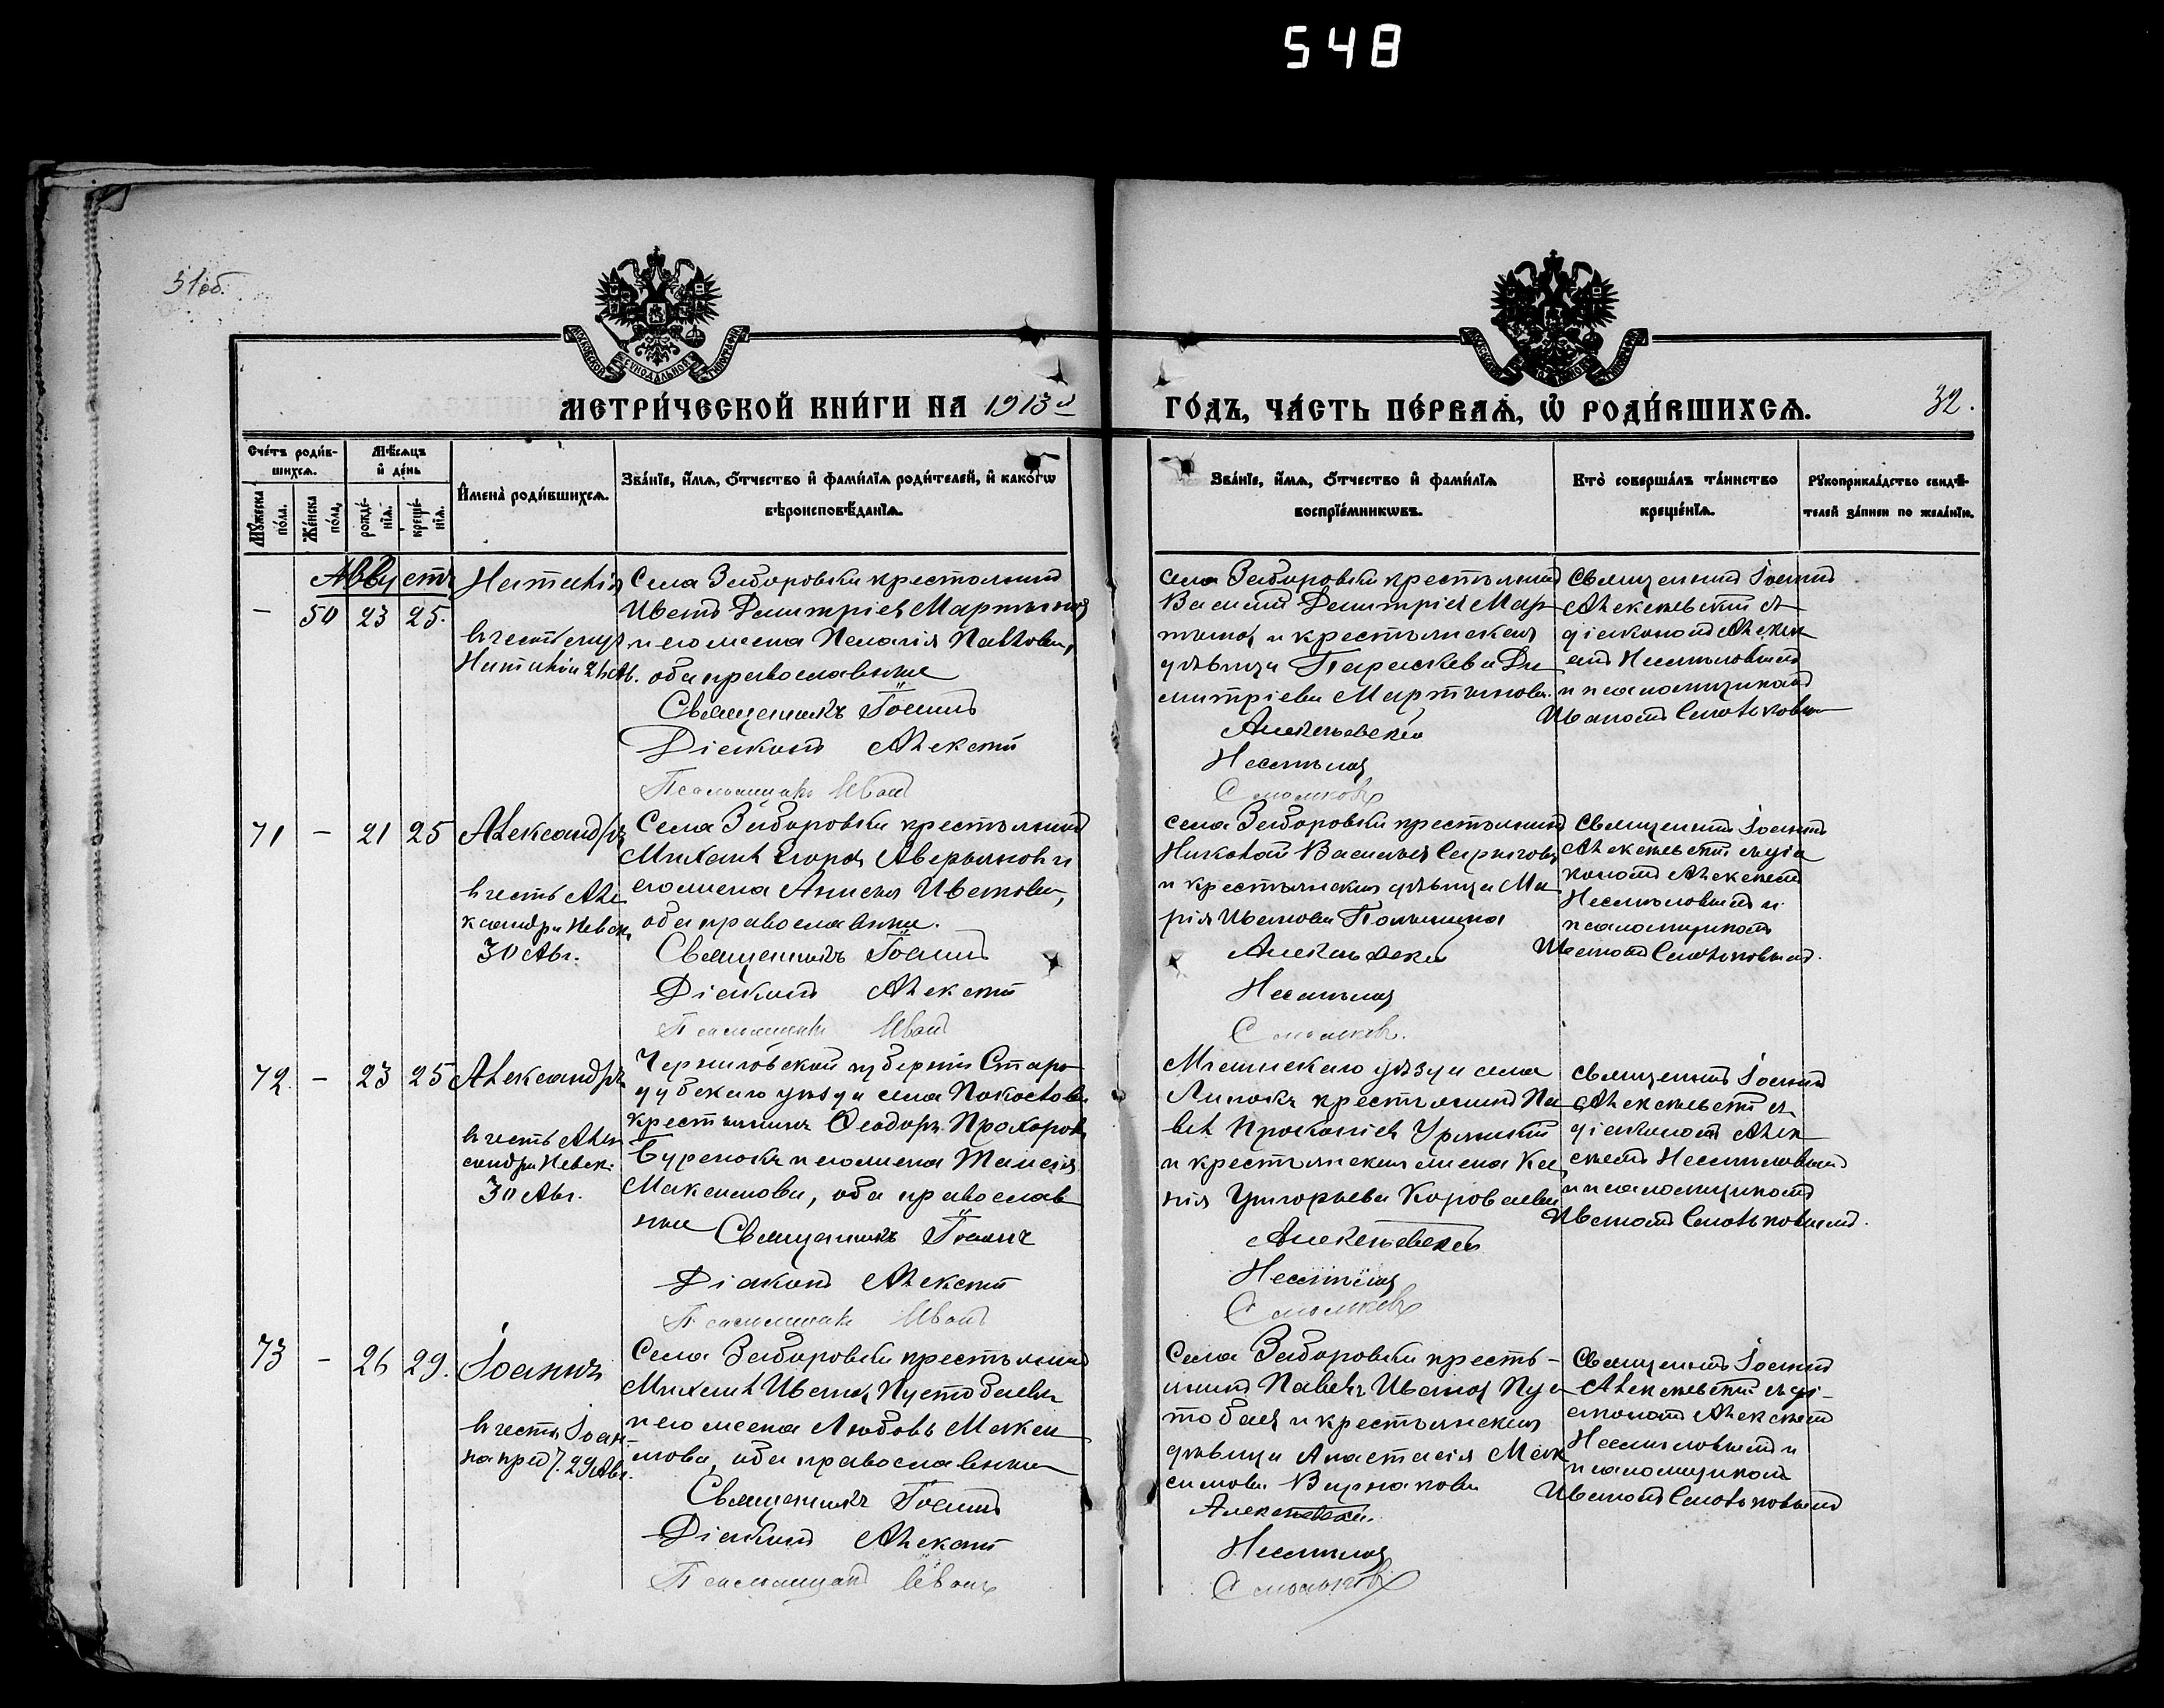 548
31об.
МОСКОВСКОЙ СѴНОДАЛЬНОЙ ТИПОГРАФІИ
МЕТРИ́ЧЕСКОЙ КНИ́ГИ НА 1913й ГО́ДЪ, ЧА́СТЬ ПЕ́РВАѦ, Ѡ҆ РОДИ́ВШИХСѦ.
32.
Сче́тъ роди́в-
шихсѧ.
Мѣ́сѧцъ
и҆ де́нь
Мꙋ́жеска по́ла.
Же́нска по́ла.
рожде́-
нїѧ.
креще́-
нїѧ.
И҆мена̀ роди́вшихсѧ.
Зва́нїе, и҆́мѧ, ѻ҆́тчество и҆ фами́лїѧ роди́телей, и҆ како́гѡ
вѣроисповѣ́данїѧ.
Зва́нїе, и҆́мѧ, ѻ҆́тчество и҆ фами́лїѧ
воспрїе́мникѡвъ.
Кто̀ соверша́лъ та́инство
креще́нїѧ.
Рꙋкоприкла́дство свидѣ́-
телей за́писи по жела́нїю.
Августъ
— 50 23 25.
Наталія
въ честь муч
Наталіи 26 Ав.
Села Заборовки крестьянинъ
Иванъ Димитріевъ Мартыновъ
и его жена Пелагія Павлова,
оба православные
Священникъ Іоаннъ
Діаконъ Алексѣй
Псаломщикъ Иванъ
Села Заборовки крестьянинъ
Василій Димитріевъ Мар-
тыновъ и крестьянская
дѣвица Параскева Ди-
митріева Мартынова.
Алексѣевскій
Несмѣловъ
Смольковъ
Священникъ Іоаннъ
Алексѣевскій съ
діакономъ Алексѣ-
емъ Несмѣловымъ
и псаломщикомъ
Иваномъ Смольковымъ
71 — 21 25
Александръ
въ честь Але-
ксандра Невск.
30 Авг.
Села Заборовки крестьянинъ
Михаилъ Егоровъ Аверьяновъ и
его жена Анисья Иванова,
оба православные.
Священникъ Іоаннъ
Діаконъ Алексѣй
Псаломщикъ Иванъ
Села Заборовки крестьянинъ
Николай Васильевъ
и крестьянская дѣвица Ма-
рія Иванова
Алексѣевскій
Несмѣловъ
Смольковъ.
Священникъ Іоаннъ
Алексѣевскій съ діа-
кономъ Алексѣемъ
Несмѣловымъ и
псаломщикомъ
Иваномъ Смольковымъ.
72. — 23 25
Александръ
въ честь Алек
сандра Невск.
30 Авг.
Черниговской губерніи Старо-
дубскаго уѣзда села
крестьянинъ Ѳеодоръ Прохоровъ
Буренокъ и его жена Таисія
Максимова, оба православ
ные Священникъ Іоаннъ
Діаконъ Алексѣй
Псаломщикъ Иванъ
Мглинскаго уѣзда села
Липокъ крестьянинъ Па-
велъ Прокопіевъ
и крестьянская жена Ксе-
нія Григорьева
Алексѣевскій
Несмѣловъ
Смольковъ
Священникъ Іоаннъ
Алексѣевскій съ
діакономъ Алек-
сѣемъ Несмѣловымъ
и псаломщикомъ
Иваномъ Смольковымъ.
73 — 26 29.
Іоаннъ
въ честь Іоан-
на пред. 29 Авг.
Села Заборовки крестьянинъ
Михаилъ Ивановъ Пустобаевъ
и его жена Любовь Макси
мова, оба православные
Священникъ Іоаннъ
Діаконъ Алексѣй
Псаломщикъ Иванъ
Села Заборовки кресть-
янинъ Павелъ Ивановъ Пус-
тобаевъ и крестьянская
дѣвица Анастасія Мак
симова
Алексѣевскій
Несмѣловъ
Смольковъ
Священникъ Іоаннъ
Алексѣевскій съ ді-
акономъ Алексѣемъ
Несмѣловымъ и
псаломщикомъ
Иваномъ Смольковымъ